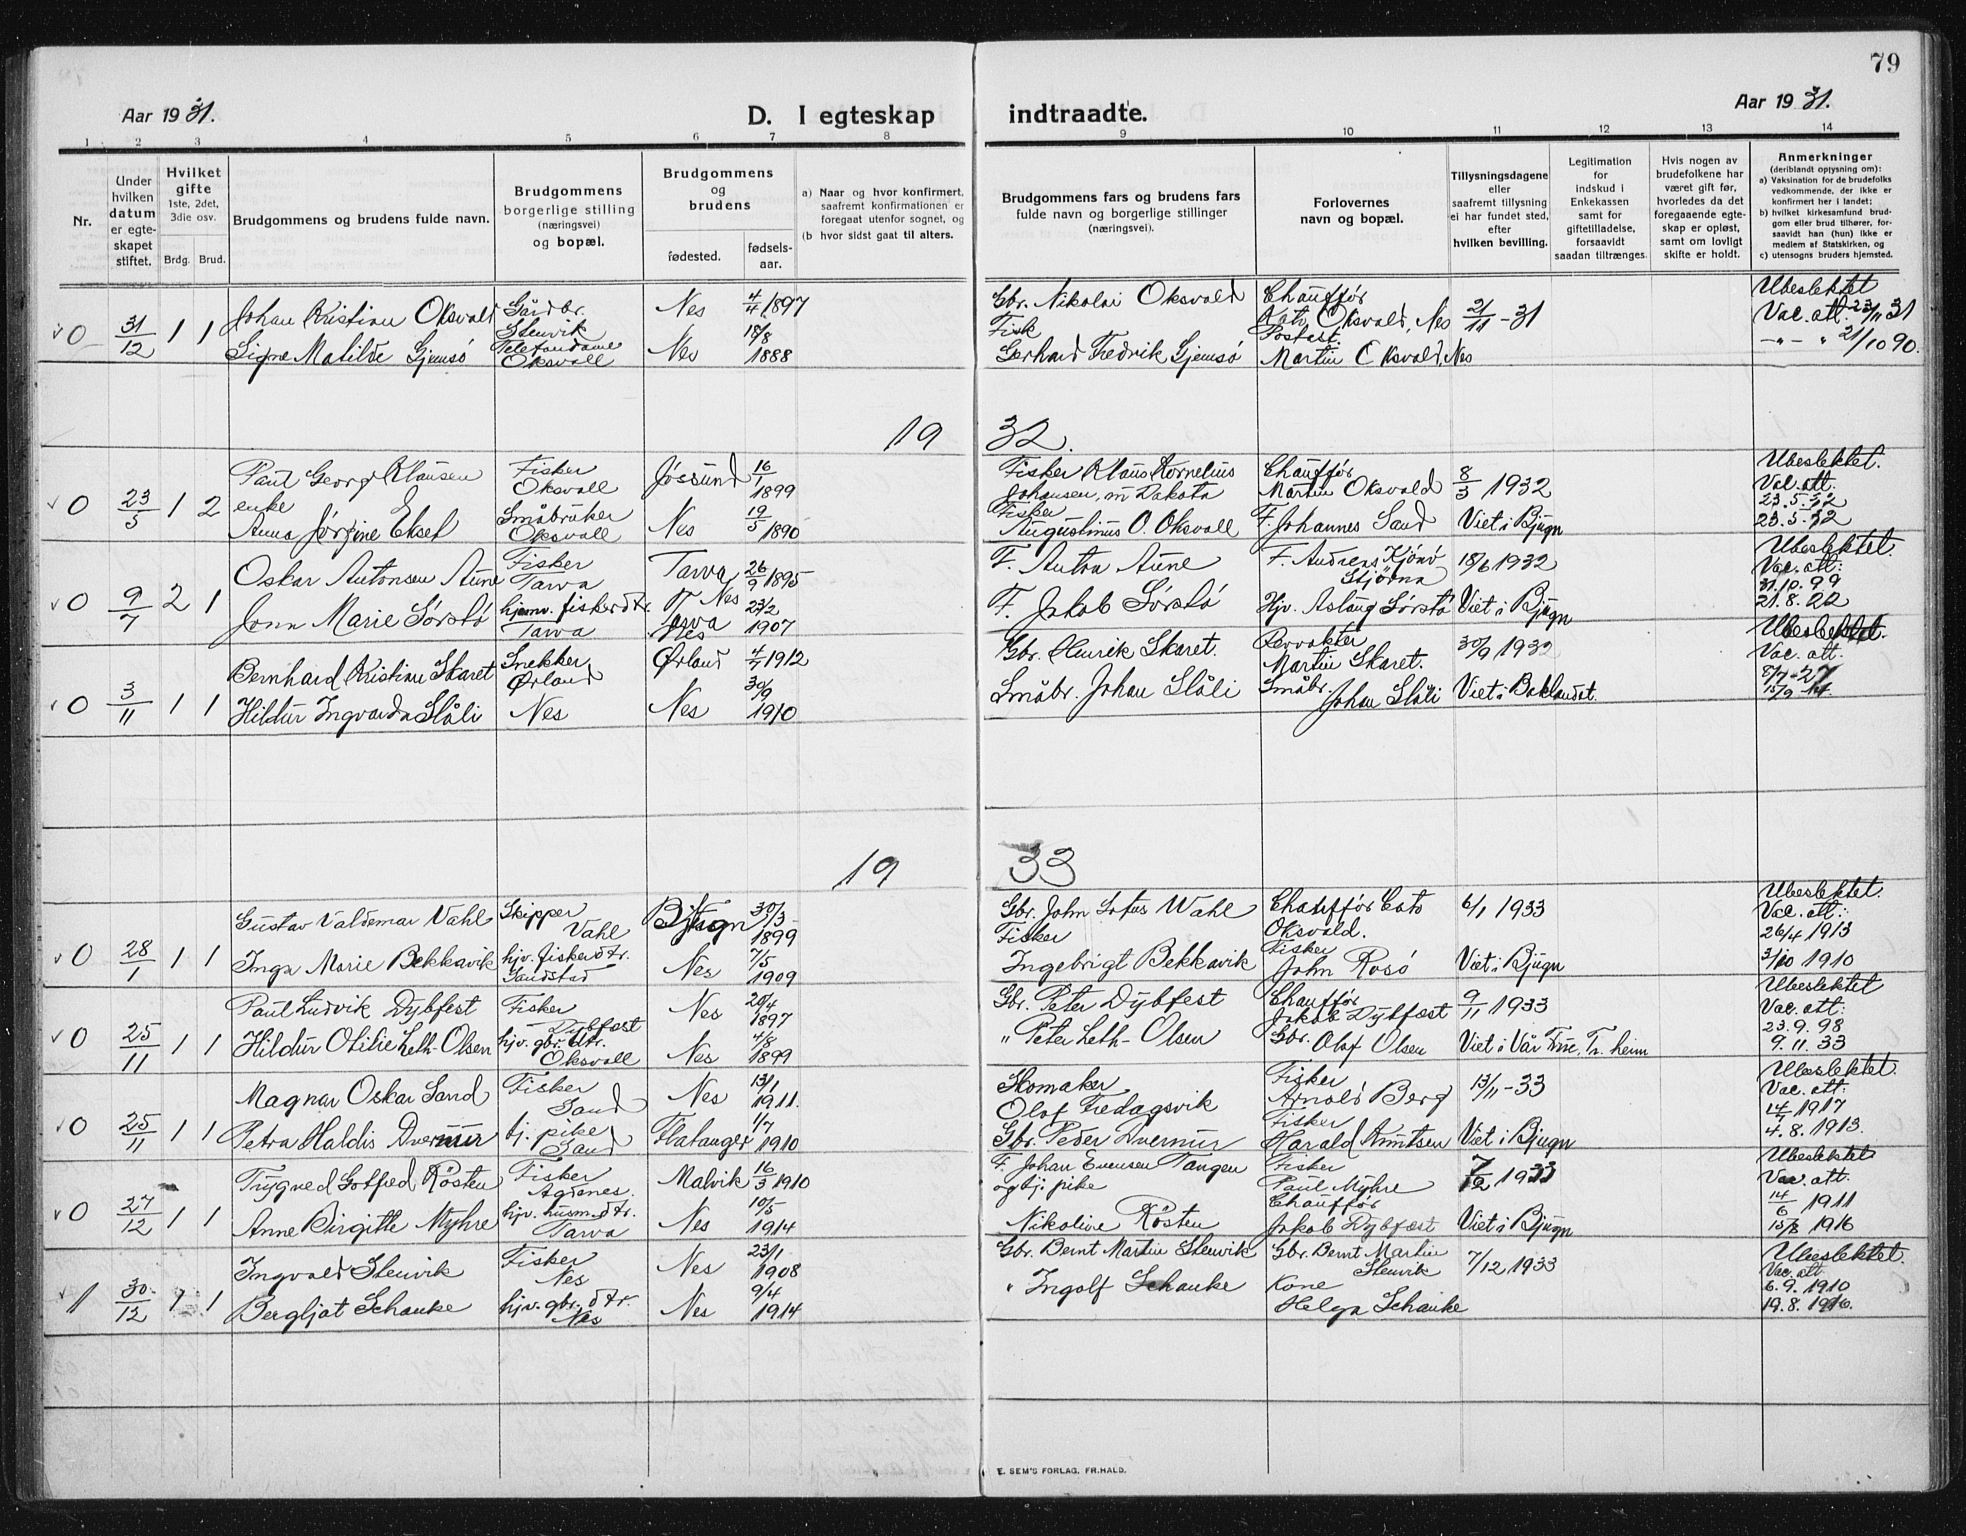 79
Aar 1931.
D. I egteskap
indtraadte.
Aar 1931.
1 2 3 4 5 6 7 8 9 10 11 12 13 14
Nr.
Under hvilken datum er egteskapet stiftet.
Hvilket gifte 1ste, 2det, 3die osv.
Brdg. Brud.
Brudgommens og brudens fulde navn.
Brudgommens borgerlige stilling (næringsvei) og bopæl.
Brudgommens og brudens
fødested.
fødselsaar.
a) Naar og hvor konfirmert, saafremt konfirmationen er foregaat utenfor sognet, og
(b hvor sidst gaat til alters.
Brudgommens fars og brudens fars fulde navn og borgerlige stillinger (næringsvei).
Forlovernes navn og bopæl.
Tillysningsdagene eller saafremt tillysning ei har fundet sted, efter hvilken bevilling.
Legitimation for indskud i Enkekassen samt for giftetilladelse, forsaavidt saadan tiltrænges.
Hvis nogen av brudefolkene har været gift før, hvorledes da det foregaaende egteskap er opløst, samt om lovligt skifte er holdt.
Anmerkninger (deriblandt opjysning om):
a) Vaksination for de brudefolks vedkommende, der ikke er konfirmert her i landet;
b) hvilket kirkesamfund brudgom eller brud tilhører, forsaavidt han (hun) ikke er medlem af Statskirken, og
c) utensogns bruders hjemsted.
0 31/12 1 1 Johan Kristian Oksvold Gårdbr. Stenvik Nes 4/4 1897 Gbr. Nikolai Oksvold Chauffør Oksvold, Nes 2/11-31 Ubeslektet Vac. att. 23/11 31
Signe Matilde Gjemsö Telefondame Oksvoll Nes 18/8 1888 Fisk Gerhard Fredrik Gjemsö Martin Oksvold, Nes 21/10 90.
19 32.
0 23/5 1 2 Paul Georg Klausen Fisker Oksvoll Jøssund 16/1 1899 Fisker Klaus Kornelius Johansen, Dakota Chauffør Martin Oksvold 8/3 1932 Ubeslektet. Vac. att. 23.5.32
enke Anna Jørgine Eksel Småbruker Oksvoll Nes 19/5 1890 Fisker Augustinus O. Oksvoll F. Johannes Sand Viet i Bjugn 23.5.32
0 9/7 2 1 Oskar Antonsen Aune Fisker Tarva Tarva 26/9 1895 F. Anton Aune F. Andreas Stjørna 18/6 1932 Ubeslektet Vac. att: 31.10.99
Jonn Marie Sørstö hjemv. fiskerdtr. Tarva Nes 23/2 1907 F. Jakob Sørstö Hjv. Aslaug Sørstö Viet i Bjugn 21.8.22
0 3/11 1 1 Bernhard Kristian Skaret Snekker Ørland Ørland 4/7 1912 Gbr. Henrik Skaret. Martin Skaret. 30/9 1932 Ubeslektet. Vac. att. 8/7-27
Hildur Ingvarda Slåli Nes Nes 30/9 1910 Småbr. Johan Slåli Småbr. Johan Slåli Viet i Baklandet. 15/9 14
19 33
0 28/1 1 1 Gustav Valdemar Vahl Skipper Vahl Bjugn 30/3 1899 Gbr. John Wahl Chauffør Cato Oksvold. 6/1 1933 Ubeslektet. Vac. att: 26/4 1913
Inga Marie Bekkavik hjv. fiskerdtr. Sandstad Nes 7/5 1909 Fisker Ingebrigt Bekkavik Fisker John Rosö Viet i Bjugn 3/10 1910
0 25/11 1 1 Paul Ludvik Dybfest Fisker Dybfest Nes 20/4 1897 Gbr. Peter Dybfest Chauffør Jakob Dybfest 9/11 1933 Ubeslektet Vac. att: 23.9.98
Hildur Otilie Leth-Olsen hjv. gbr. dtr. Oksvoll Nes 4/8 1899 " Peter Leth-Olsen Gbr. Olaf Olsen Viet i Vår Frue, Tr.heim 9.11.33
0 25/11 1 1 Magnar Oskar Sand Fisker Sand Nes 13/1 1911. Skomaker Olaf Fredagsvik Fisker Arnold Berg 13/11-33 Ubeslektet. Vac. att: 1917
Petra Haldis Duernur tj. pike Sand Flatanger 1/7 1910 Gbr. Peder Duernur Fisker Harald Knutsen Viet i Bjugn 4.8.1913.
0 27/12 1 1 Trygved Gotfred Rösten Fisker Agdenes. Malvik 16/3 1910 F. Johan Evensen Tangen og tj. pike Nikoline Rösten Fisker Paul Myhre 7/12 1933 Ubeslektet Vac. att. 14/6 1911
Anne Birgitte Myhre hjv. husm.dtr. Tarva Nes 10/5 1914 Chauffør Jakob Dybfest Viet i Bjugn 15/8 1916
1 30/12 1 1 Ingvald Stenvik Fisker Nes Nes 23/1 1908 Gbr. Bernt Martin Stenvik Gbr. Bernt Martin Stenvik 7/12 1933 Ubeslektet. Vac. att 6.9.1910
Bergljot Schanke hjv. gbr. dtr. Nes Nes 9/4 1914 " Ingolf Schanke Kone Helga Schanke 19.8.1916.
E. SEM'S FORLAG, FR.HALD.